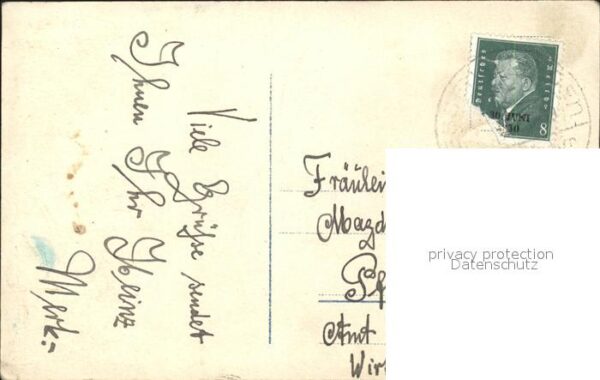 Viele Grüße sendet
Ihnen Ihr Heinz
Merk.
Deutsches Reich
8
30. JUNI
1930
Fräulein
Magd
Pf
Amt
Wir
privacy protection
Datenschutz